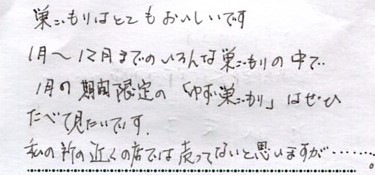 巣ごもりはとてもおいしいです
1月～12月までのいろんな巣ごもりの中で
1月の期間限定の「ゆず巣ごもり」はぜひ
たべて見たいです.
私の所の近くの店では売ってないと思いますが………。